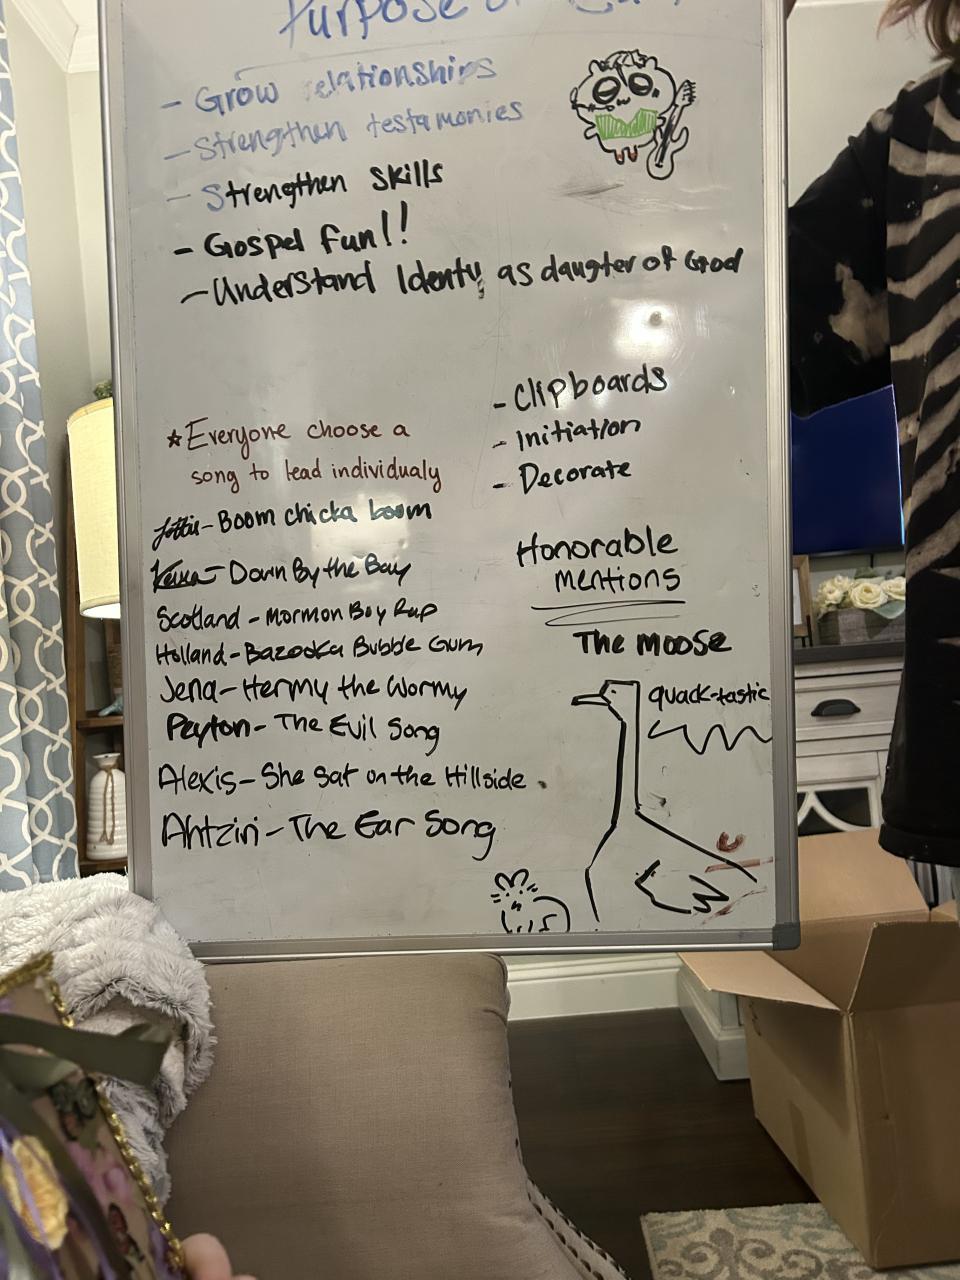 Purpose of
- Grow relationships
- Strengthen testamonies
- Strengthen skills
- Gospel fun!!
- Understand Identy as daugter of God
- Clipboards
- Initiation
- Decorate
★ Everyone choose a
song to lead individualy
Lottie - Boom chicka boom
- Down By the Bay
Scotland - Mormon Boy Rap
Holland - Bazooka Bubble Gum
Jena - Hermy the Wormy
Peyton - The Evil Song
Alexis - She Sat on the Hillside
Ahtziri - The Ear Song
Honorable
mentions
The Moose
quack-tastic